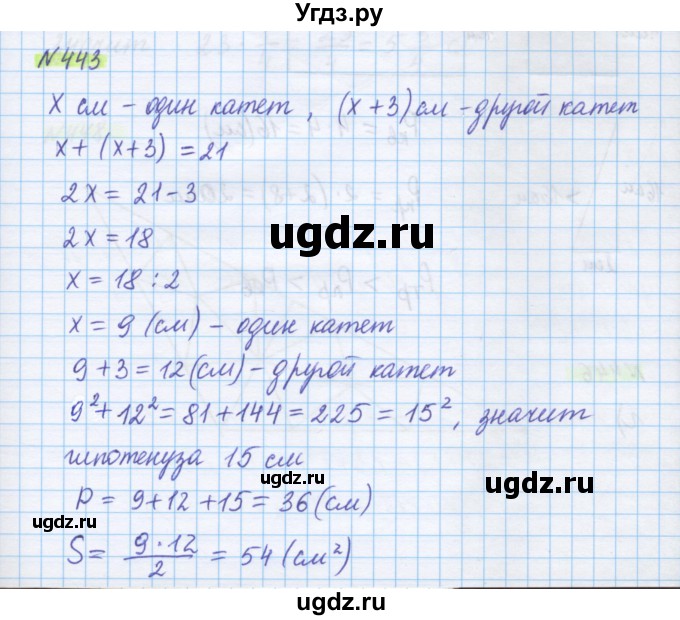 Угдз.ру
N 443
x см - один катет, (x+3) см - другой катет
x + (x+3) = 21
2x = 21-3
ugdz.ru
2x = 18
ugdz.ru
x = 18 : 2
x = 9 (см) - один катет
9+3 = 12 (см) - другой катет
9² + 12² = 81 + 144 = 225 = 15², значит
ugdz.ru
гипотенуза 15 см
ugdz.ru
P = 9+12+15 = 36 (см)
ugdz.ru
S = 9·12/2 = 54 (см²)
ugdz.ru
ugdz.ru